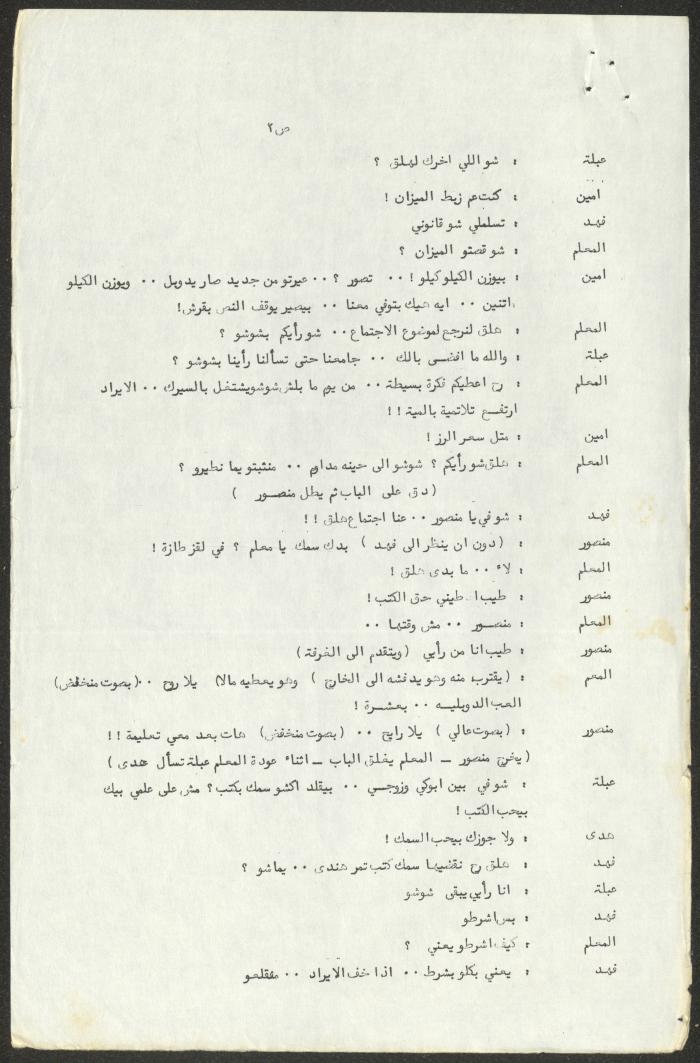 ص٢
عبلة : شو اللي اخرك لهلق ؟
امين : كنت عم زبط الميزان !
فهد : تسلملي شو قانوني
المعلم : شو قصتو الميزان ؟
امين : بيوزن الكيلو كيلو ! ٠٠ تصور ؟ ٠٠ عيرتو من جديد صار يدوبل ٠٠ ويوزن الكيلو
اتنين ٠٠ ايه هيك بتوفي معنا ٠٠ بيصير يوقف النص بقرش!
المعلم : هلق لنرجع لموضوع الاجتماع ٠٠ شو رأيكم بشوشو ؟
عبلة : والله ما افضى بالك ٠٠ جامعنا حتى تسألنا رأينا بشوشو ؟
المعلم : رح اعطيكم فكرة بسيطة ٠٠ من يوم ما بلش شوشو يشتغل بالسيرك ٠٠ الايراد
ارتفع تلاتمية بالمية ! !
امين : متل سعر الرز !
المعلم : هلق شو رأيكم ؟ شوشو الى حينه مداوم ٠٠ منثبتو يما نطيرو ؟
( دق على الباب ثم يطل منصور )
فهد : شو في يا منصور ٠٠ عنا اجتماع هلق ! !
منصور : ( دون ان ينظر الى فهد ) بدك سمك يا معلم ؟ في لقز طازة !
المعلم : لاء ٠٠ ما بدي هلق !
منصور : طيب اعطيني حق الكتب !
المعلم : منصور ٠٠ مش وقتها ٠٠
منصور : طيب انا من رأيي ( ويتقدم الى الغرفة )
المعم : ( يقترب منه وهو يدفشه الى الخارج ) وهو يعطيه مالا) يلا روح ٠٠( بصوت منخفض)
العب الدوبليه ٠٠ بعشرة !
منصور : ( بصوت عالي ) يلا رايح ٠٠ (بصوت منخفض) هات بعد معي تعليمة ! !
( يخرج منصور ــ المعلم يغلق الباب ــ اثناء عودة المعلم عبلة تسأل هدى )
عبلة : شو في بين ابوكي وزوجي ٠٠ بيقلد اكشو سمك بكتب ؟ مش على علمي بيك
بيحب الكتب !
هدى : ولا جوزك بيحب السمك !
فهد : هلق رح نقضيها سمك كتب تمر هندي ٠٠ يما شو ؟
عبلة : انا رأيي يبقى شوشو
فهد : بس اشرطو
المعلم : كيف اشرطو يعني ؟
فهد : يعني بكلو بشرط ٠٠ اذا خف الايراد ٠٠ منقلعو